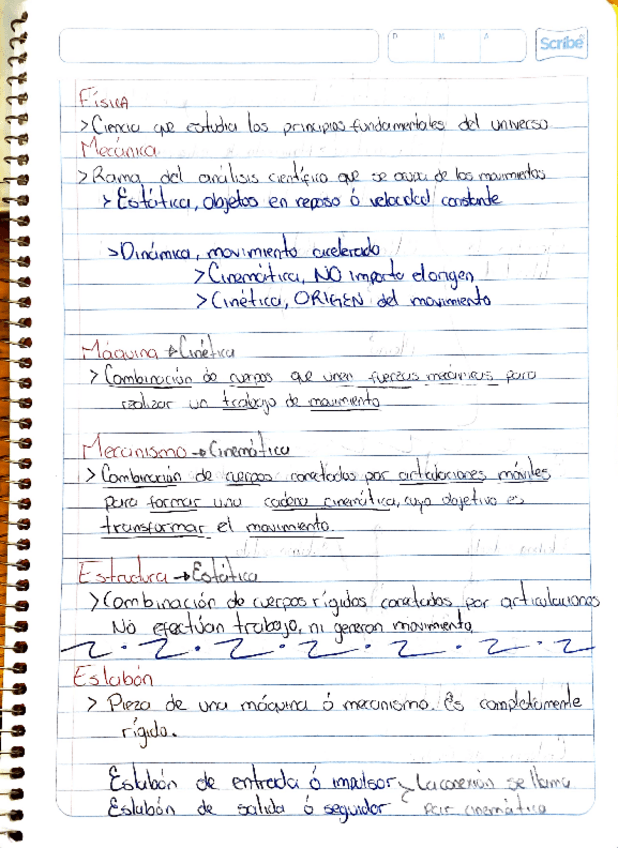 D M A
Scribe
Física
> Ciencia que estudia los principios fundamentales del universo
Mecánica
> Rama del análisis científico que se ocupa de los movimientos
> Estática, objetos en reposo ó velocidad constante
> Dinámica, movimiento acelerado
> Cinemática, NO importa el origen
> Cinética, ORIGEN del movimiento
Máquina → Cinética
> Combinación de cuerpos que unen fuerzas mecánicas para
realizar un trabajo de movimiento
Mecanismo → Cinemática
> Combinación de cuerpos conectados por articulaciones móviles
para formar una cadena cinemática, cuyo objetivo es
transformar el movimiento.
Estructura → Estática
> Combinación de cuerpos rígidos conectados por articulaciones
No efectúan trabajo, ni generan movimiento
Eslabón
> Pieza de una máquina ó mecanismo. És completamente
rígida.
Eslabón de entrada ó impulsor > La conexión se llama
Eslabón de salida ó seguidor par cinemático